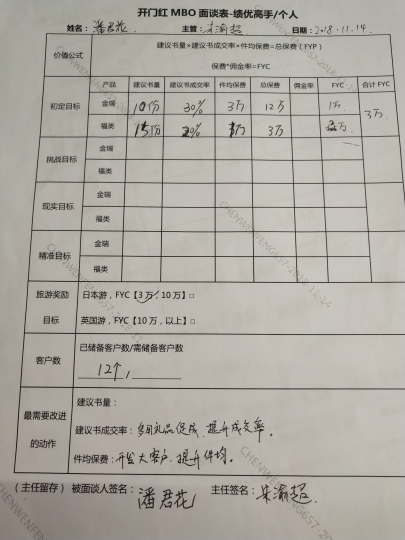 开门红 MBO 面谈表-绩优高手/个人
姓名：潘君花 主管：朱渝超 日期：2018.11.14
价值公式 建议书量×建议书成交率×件均保费=总保费（FYP）
保费*佣金率=FYC
产品 建议书量 建议书成交率 件均保费 总保费 佣金率 FYC 合计 FYC
初定目标 金瑞 10份 30% 3万 12万 1万 3万
福类 15份 20% 1万 3万 2万
挑战目标 金瑞
福类
现实目标 金瑞
福类
精准目标 金瑞
福类
旅游奖励 日本游，FYC【3 万/10 万】□
目标 英国游，FYC【10 万，以上】□
客户数 已储备客户数/需储备客户数
12个，
最需要改进的动作
建议书量：
建议书成交率：多用礼品促成，提升成交率。
件均保费：开发大客户，提升件均。
（主任留存）被面谈人签名：潘君花 主任签名：朱渝超
CHENWENFENG657-2018-11-14